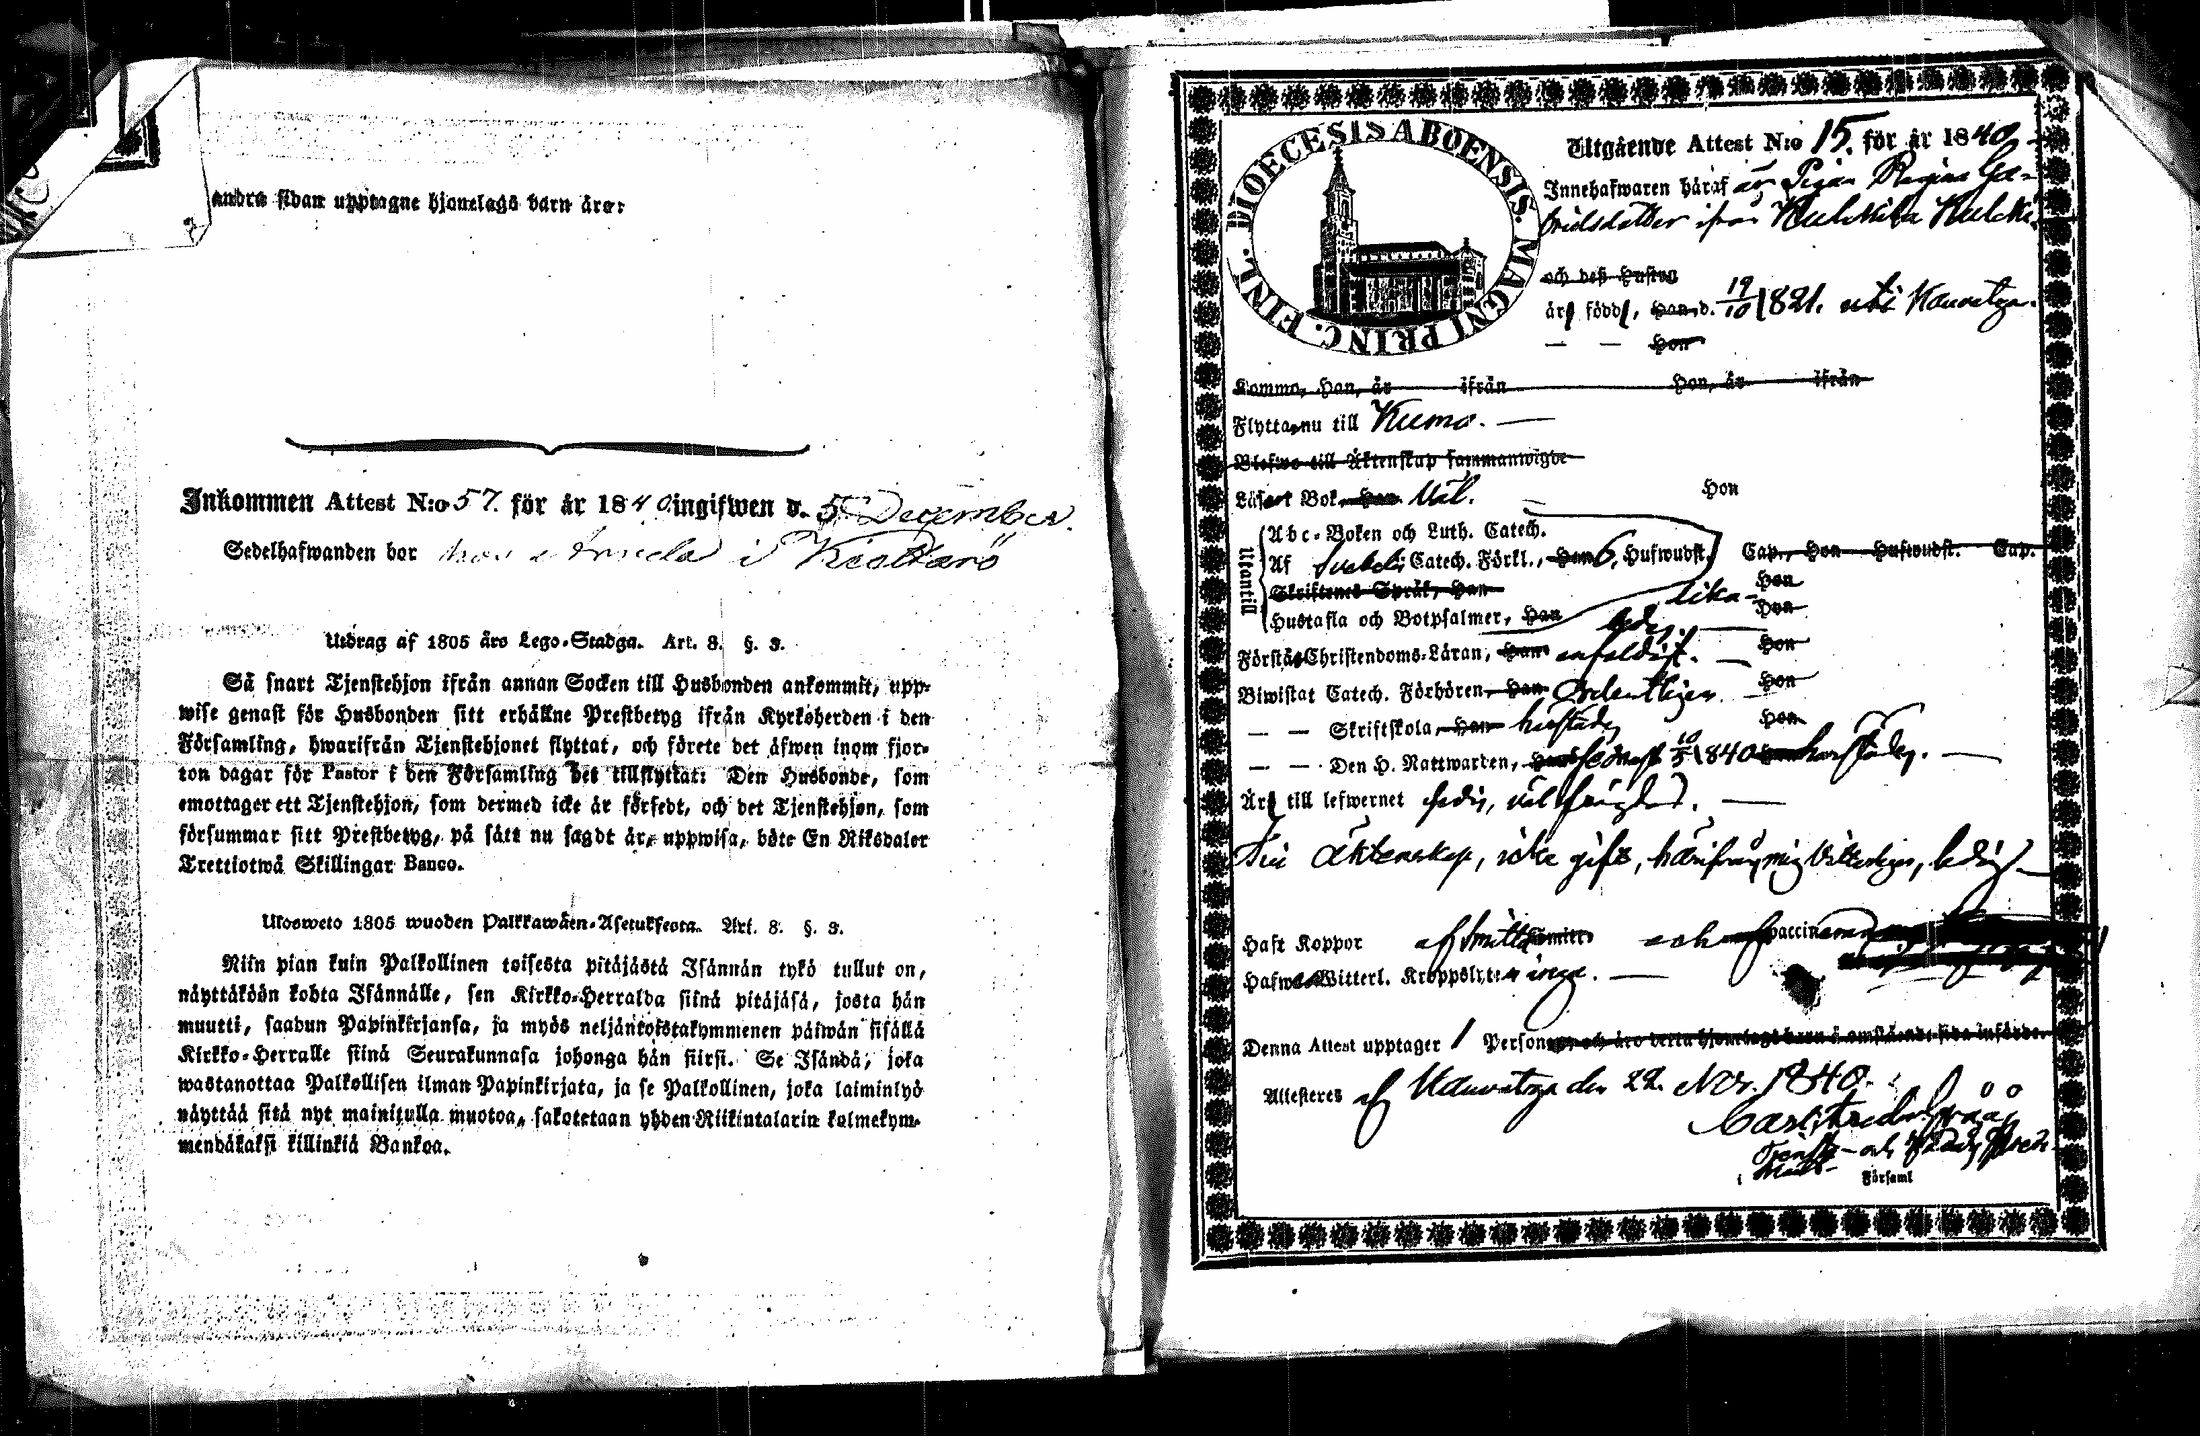 andra sidan upptagne hjonelags barn äro:
Inkommen Attest N:o 57. för år 1840 ingifwen d. 5 December.
Sedelhafwanden bor hos i Kiettarö
Utdrag af 1805 års Lego-Stadga. Art. 8. §. 3.
Så snart Tjenstehjon ifrån annan Socken till Husbonden ankommit, upp-
wise genast för Husbonden sitt erhållne Prestbetyg ifrån Kyrkoherden i den
Församling, hwarifrån Tjenstehjonet flyttat, och förete det äfwen inom fjor-
ton dagar för Pastor i den Församling det tillflyttat: Den Husbonde, som
emottager ett Tjenstehjon, som dermed icke är försedt, och det Tjenstehjon, som
försummar sitt Prestbetyg, på sätt nu sagdt är, uppwisa, böte En Riksdaler
Trettiotwå Skillingar Banco.
Ulosweto 1805 wuoden Palkkawäen-Asetuksesta. Art. 8. §. 3.
Niin pian kuin Palkollinen toisesta pitäjästä Isännän tykö tullut on,
näyttäköön kohta Isännälle, sen Kirkko-Herralda siinä pitäjäsä, josta hän
muutti, saadun Papinkirjansa, ja myös neljäntoistakymmenen päiwän sisällä
Kirkko-Herralle siinä Seurakunnasa johonga hän siirsi. Se Isändä, joka
wastanottaa Palkollisen ilman Papinkirjata, ja se Palkollinen, joka laiminlyö
näyttää sitä nyt mainitulla muotoa, sakotetaan yhden Riikintalarin kolmekym-
mendäkaksi killinkiä Bankoa.
DIOECESIS ABOENSIS. MAGNI PRINC. FINL.
Utgående Attest N:o 15. för år 1840
Innehafwaren häraf är Pigan Regina Ga-
bridsdotter ifrån Kulckila Kulcki
och deß Hustru
är född, Han, d. 19/10 1821. uti Kauvatsa.
— — Hon
Komme, Han, år ifrån Hon, år ifrån
Flytta nu till Kumo. —
Blefwo till Äktenskap sammanwigde
Läser i Bok, Han Väl. Hon
Utantill
Abc-Boken och Luth. Catech.
Af Catech. Förkl., Han 6, Hufwudst. Cap., Hon Hufwudst. Cap.
Skriftenes Språk, Han Hon
Hustafla och Botpsalmer, Han lika- Hon
Förstå Christendoms-Läran, Han enfaldigt. — Hon
Biwistat Catech. Förhören, Han Ordentligen. Hon
— — Skriftskola, Han Hon
— — Den H. Nattwarden, Han senast 1840 Hon
Är till lefwernet väl —
Till Äktenskap, icke gift, härifrån, mig Vitterligen, ledig. —
Haft Koppor Smitt och vaccin
Hafwa Witterl. Kroppslyten inga. —
Denna Attest upptager 1 Personer, och äro detta hjonelags barn å omstående sida införde.
Attesteres af Kauvatsa den 22. Nov. 1840.
Carl Fredr.
i Församl